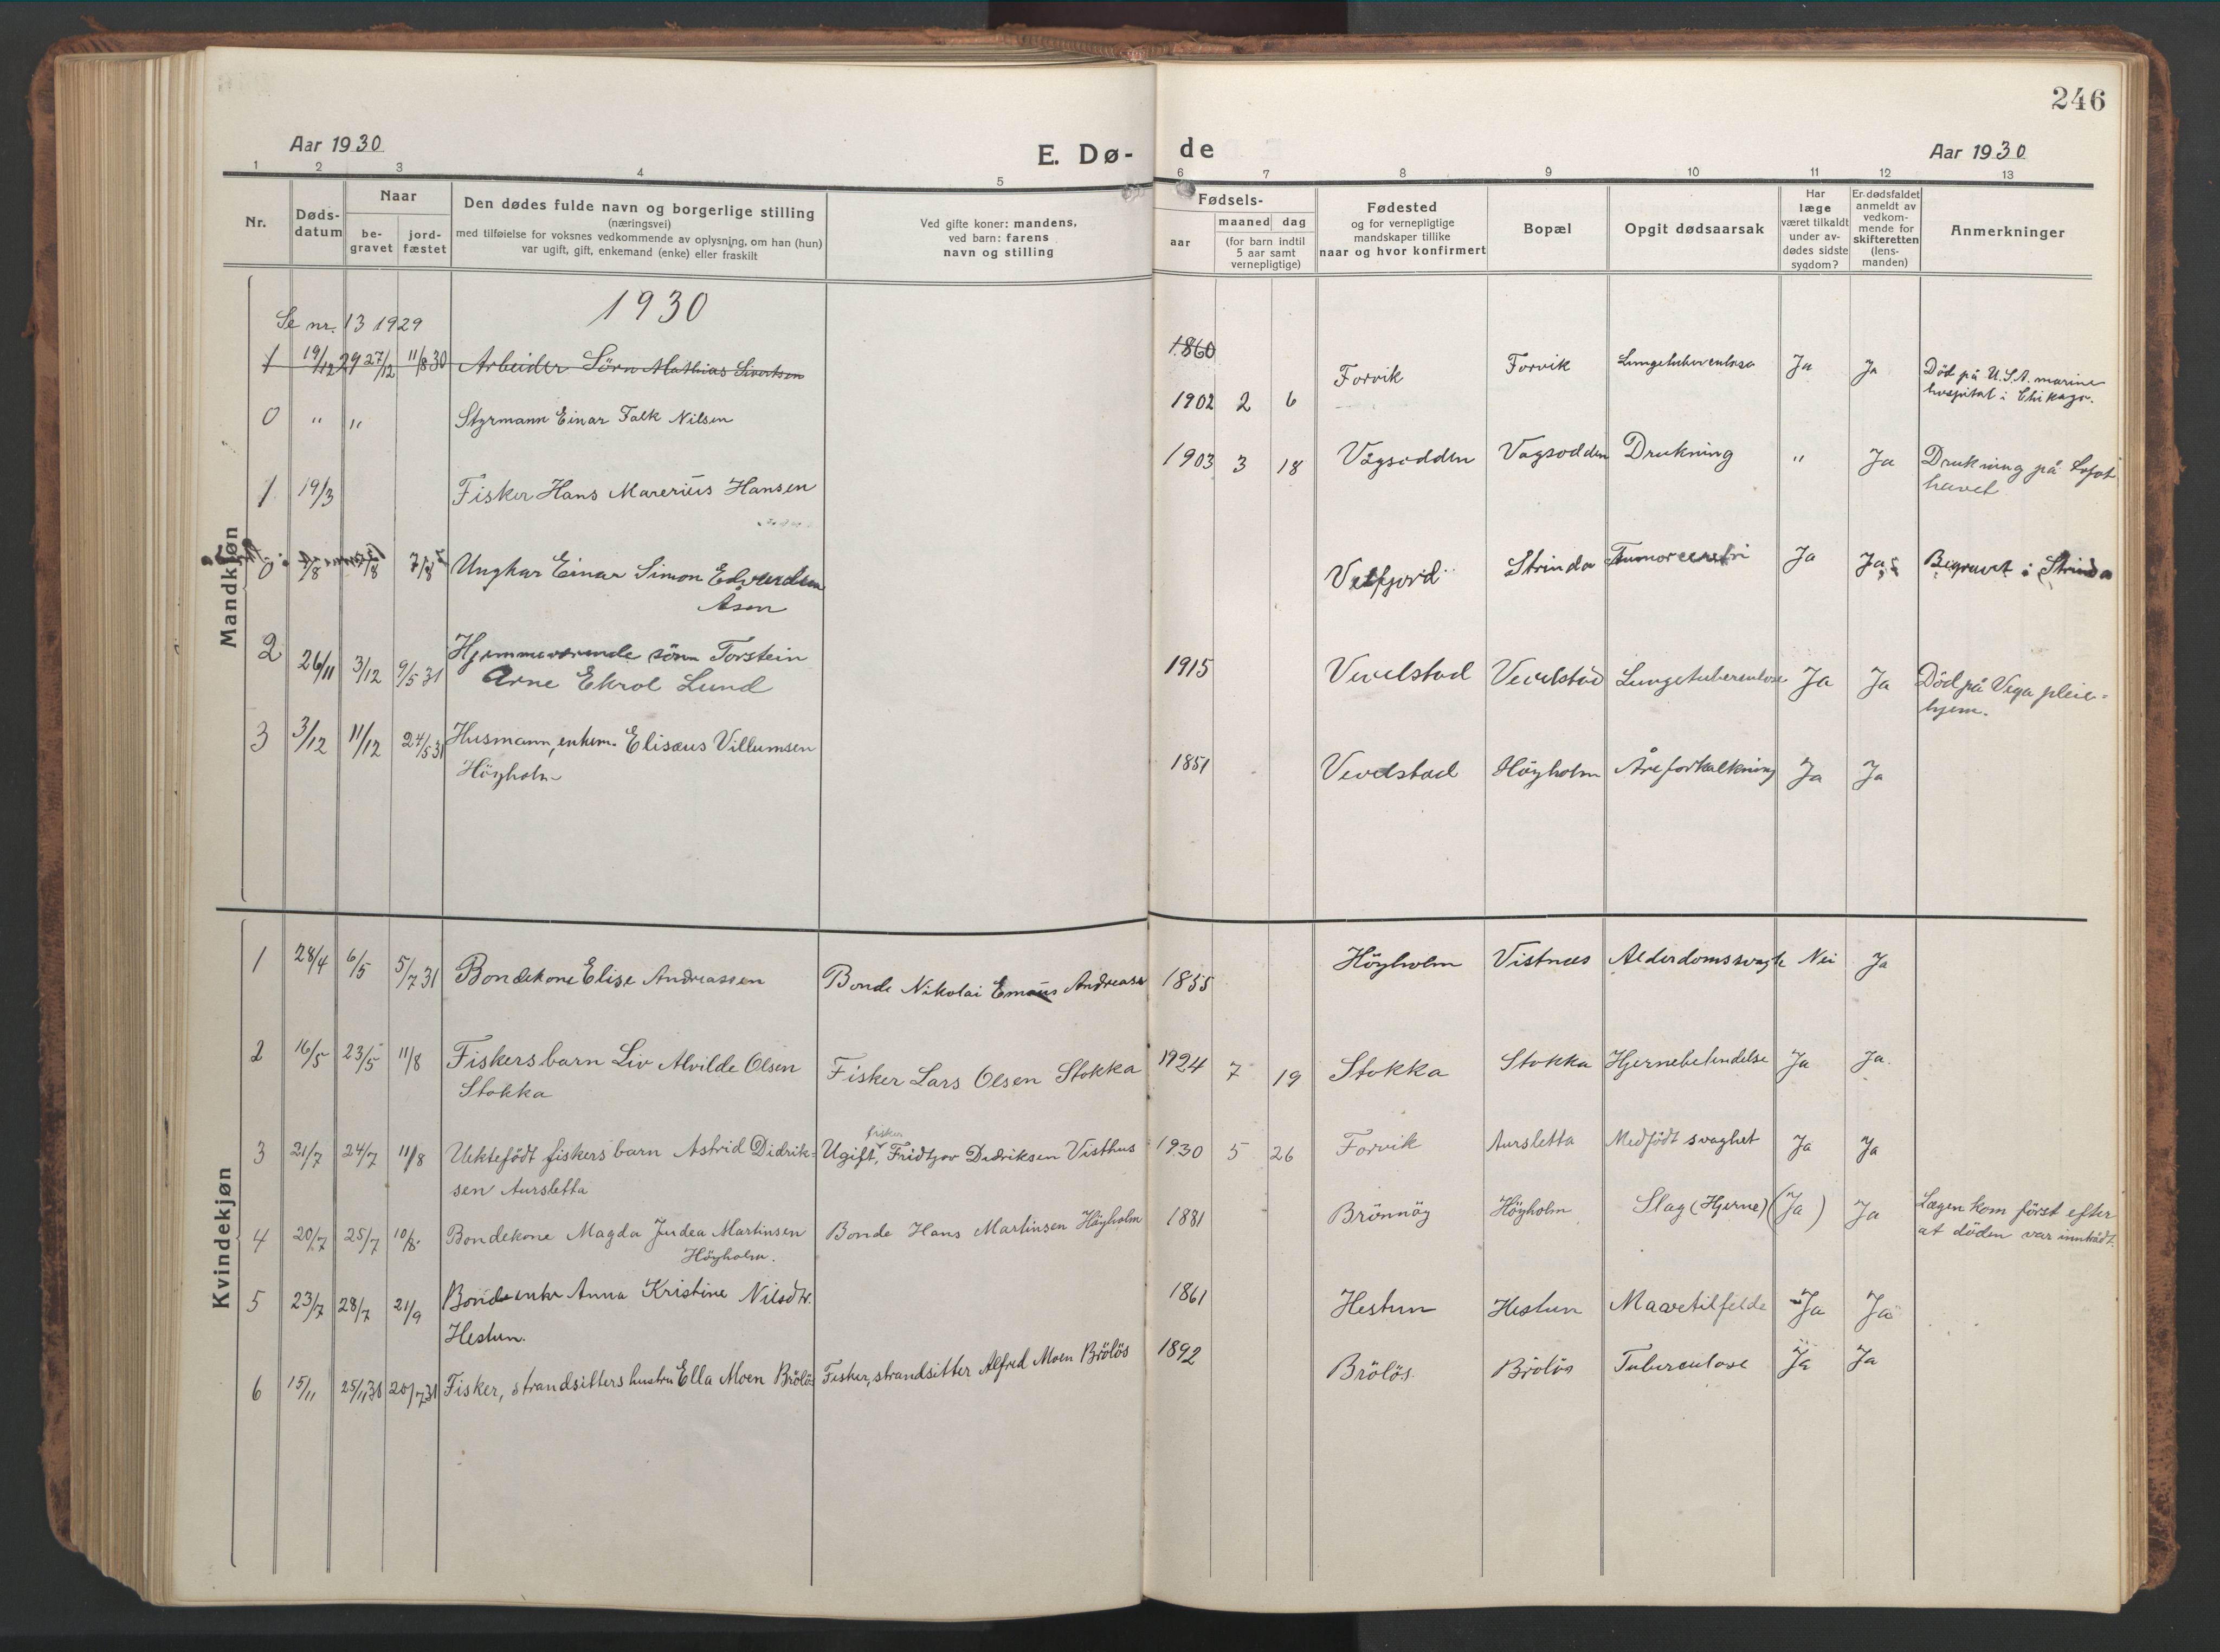 246
Aar 1930
E. Dø-
de
Aar 1930
1 2 3 4 5 6 7 8 9 10 11 12 13
Nr.
Døds-
datum
Naar
be-
gravet
jord-
fæstet
Den dødes fulde navn og borgerlige stilling
(næringsvei)
med tilføielse for voksnes vedkommende av oplysning, om han (hun)
var ugift, gift, enkemand (enke) eller fraskilt
Ved gifte koner: mandens,
ved barn: farens
navn og stilling
Fødsels-
aar
maaned dag
(for barn indtil
5 aar samt
vernepligtige)
Fødested
og for vernepligtige
mandskaper tillike
naar og hvor konfirmert
Bopæl
Opgit dødsaarsak
Har
læge
været tilkaldt
under av-
dødes sidste
sygdom?
Er dødsfaldet
anmeldt av
vedkom-
mende for
skifteretten
(lens-
manden)
Anmerkninger
Mandkjøn
1930
Se nr. 13 1929
1 19/12 29 27/12 11/8 30 Arbeider Sörn Mathias Sivertsen 1860
0 " " Styrmann Einar Falk Nilsen 1902 2 6 Forvik Forvik Lungetuberculosa Ja Ja Död på U.S.A. marine
hospital i Chikago.
1 19/3 Fisker Hans Marerius Hansen 1903 3 18 Vågsodden Vagsodden Drukning " Ja Drukning på Lofot
havet
0 7/8 Ungkar Einar Simon Edvardsen
Åsen Velfjord Strinda Ja Ja Begravet i Strinda
2 26/11 3/12 9/5 31 Hjemmeværende sönn Torstein
Arne Ekrol Lund 1915 Vevelstad Vevelstad Lungetuberculose Ja Ja Död på Vega pleie-
hjem.
3 3/12 11/12 24/5 31 Husmann, enkem. Elisæus Villumsen
Höyholm 1851 Vevelstad Höyholm Åreforkalkning Ja Ja
Kvindekjøn
1 28/4 6/5 5/7 31 Bondekone Elise Andreassen Bonde Nikolai Emaus Andreass 1855 Höyholm Vistnes Alderdomssvagh Nei Ja
2 16/5 23/5 11/8 Fiskersbarn Liv Alvilde Olsen
Stokka Fisker Lars Olsen Stokka 1924 7 19 Stokka Stokka Hjernebetendelse Ja Ja.
fisker
3 21/7 24/7 11/8 Uektefödt fiskersbarn Astrid Didrik-
sen Aursletta Ugift, Fridtjov Didriksen Visthus 1930 5 26 Forvik Aursletta Medfödt svaghet Ja Ja
4 20/7 25/7 10/8 Bondekone Magda Judea Martinsen
Höyholm. Bonde Hans Martinsen Höyholm 1881 Brönnöy Höyholm Slag (Hjerne) (Ja) Ja Lægen kom först efter
at döden var inntrådt.
5 23/7 28/7 21/9 Bondeenke Anna Kristine Nilsdtr.
Hestun. 1861 Hestun Hestun Mavetilfelde Ja Ja
6 15/11 25/11 30 20/7 31 Fisker, strandsitters hustru Ella Moen Brölös Fisker, strandsitter Alfred Moen Brölös 1892 Brölös. Brölös Tuberculose Ja Ja